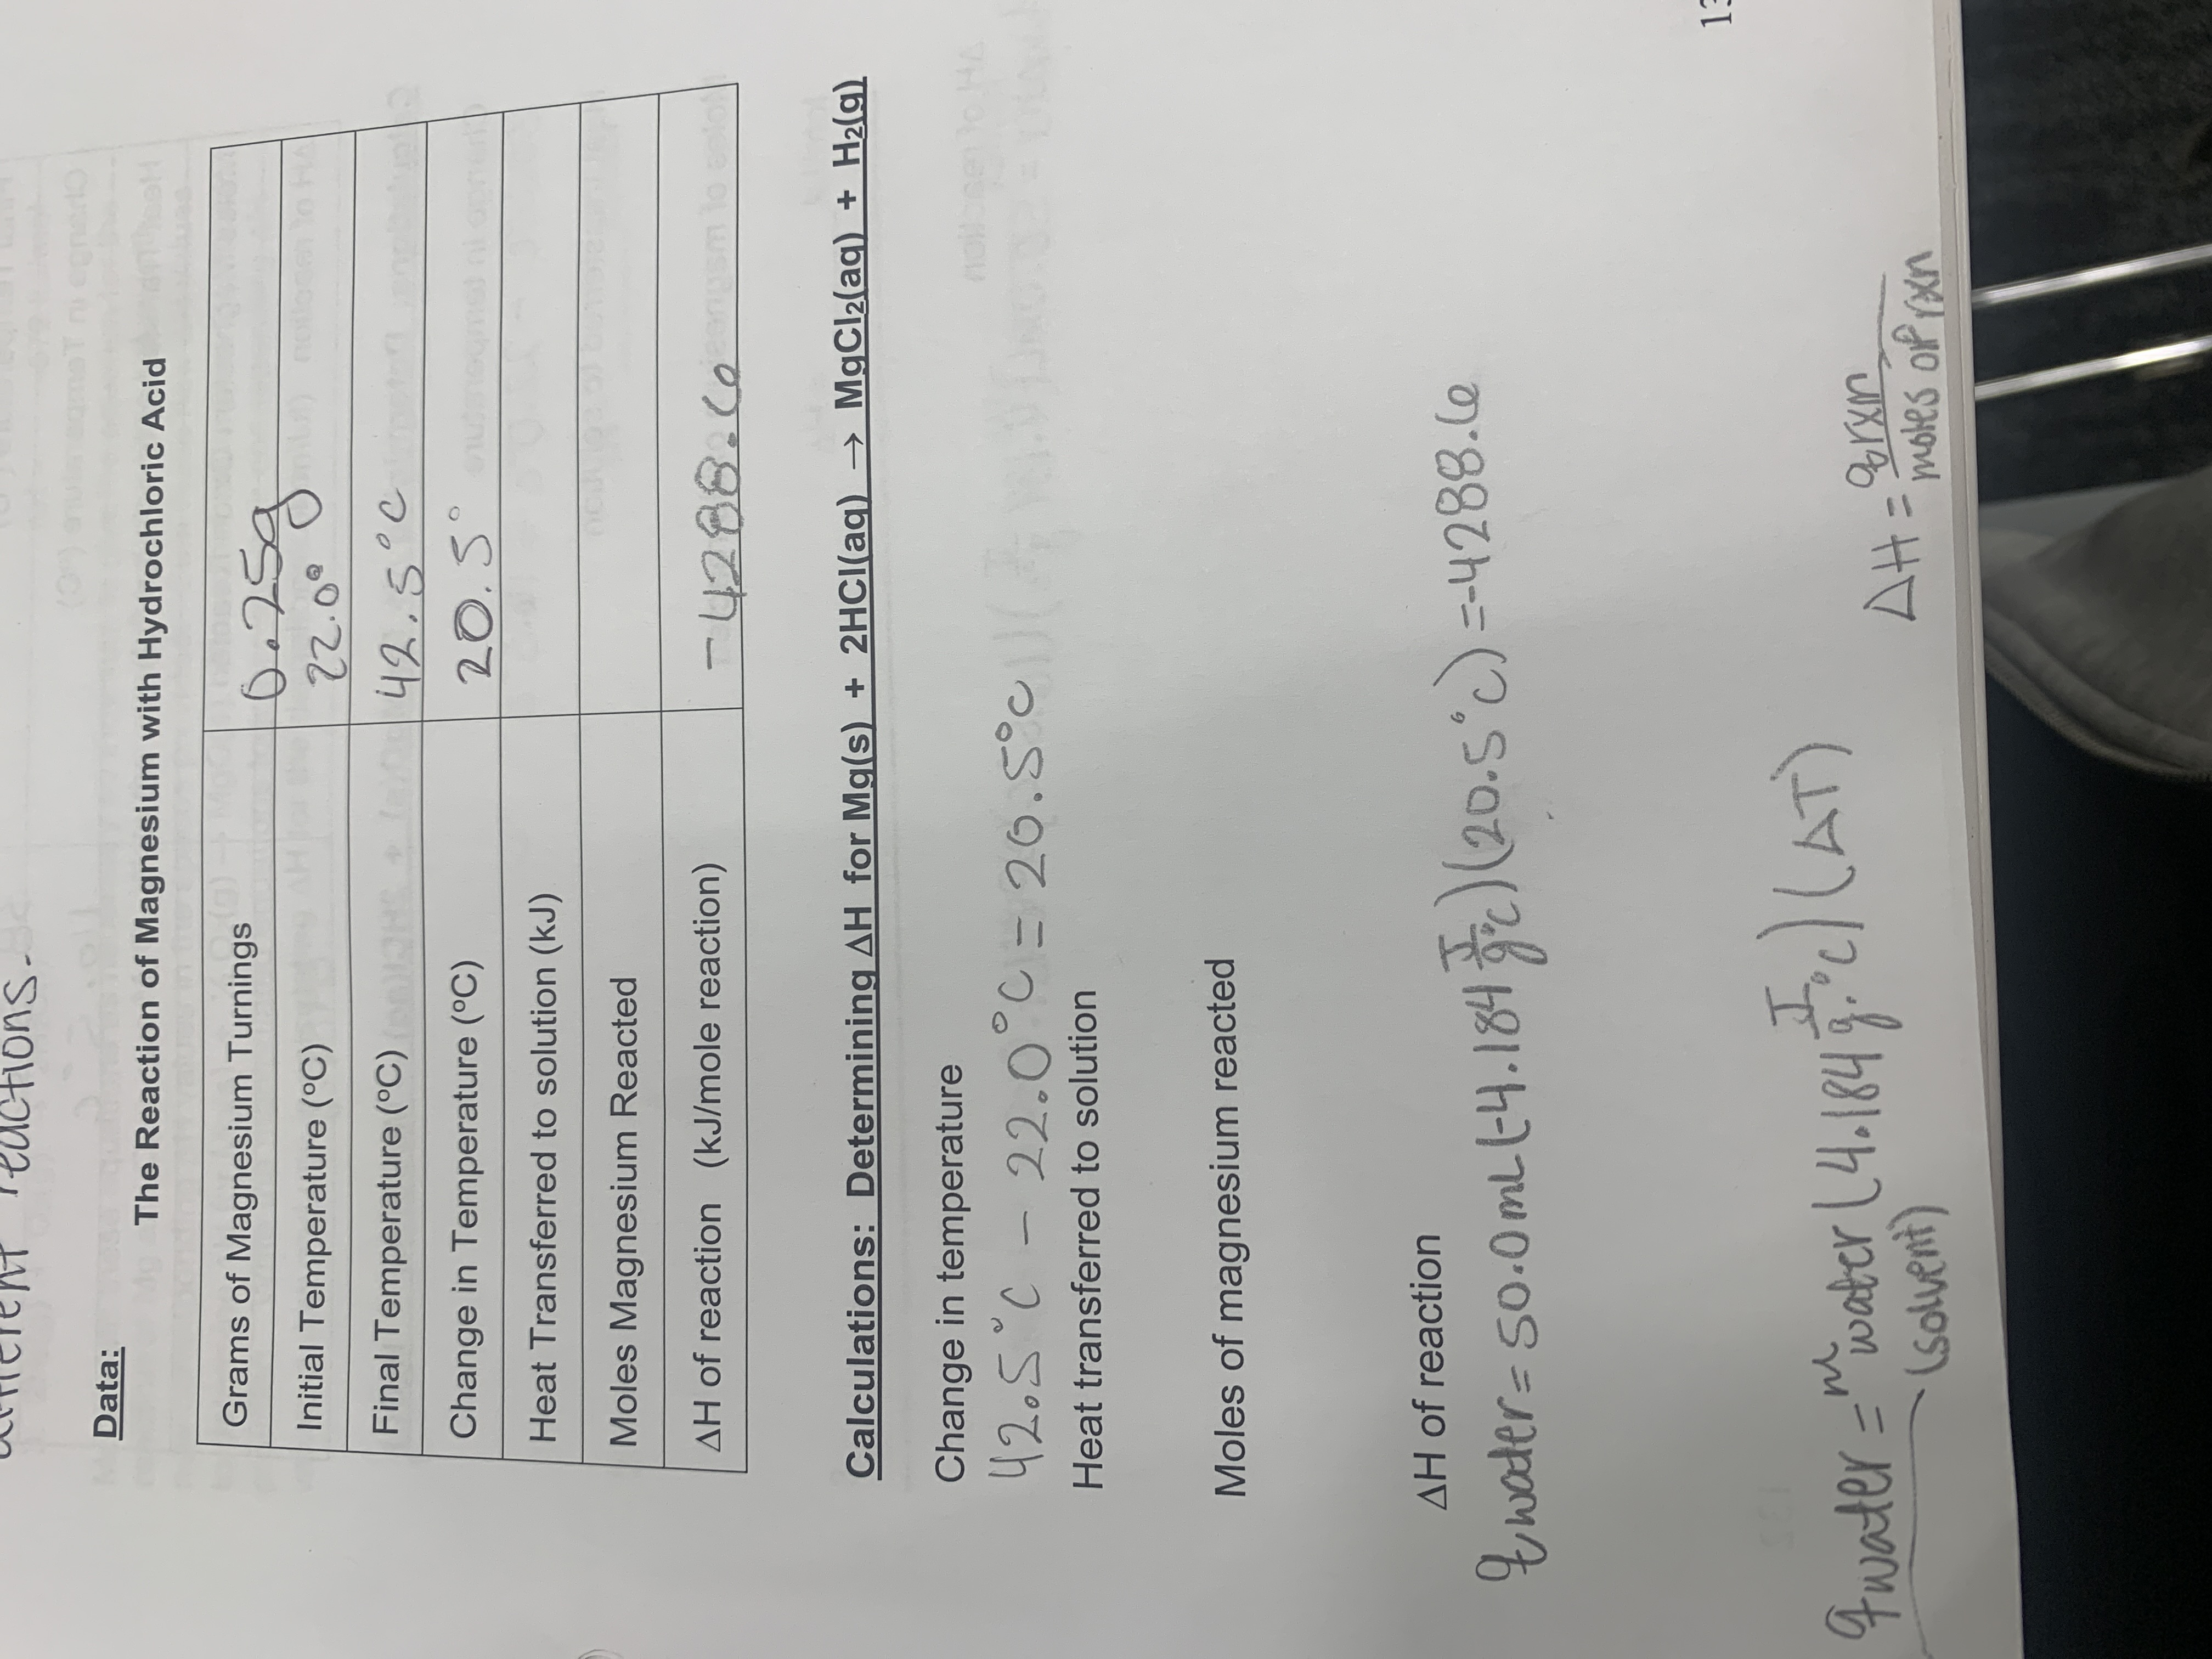 different reactions.
Data:
The Reaction of Magnesium with Hydrochloric Acid
Grams of Magnesium Turnings 0.25g
Initial Temperature (ºC) 22.0°
Final Temperature (ºC) 42.5°C
Change in Temperature (ºC) 20.5°
Heat Transferred to solution (kJ)
Moles Magnesium Reacted
ΔH of reaction (kJ/mole reaction) -4288.6
Calculations: Determining ΔH for Mg(s) + 2HCl(aq) → MgCl₂(aq) + H₂(g)
Change in temperature
42.5°C - 22.0°C = 20.5°C
Heat transferred to solution
Moles of magnesium reacted
ΔH of reaction
qwater = 50.0mL(-4.184 J/g°C)(20.5°C) = -4288.6
qwater = mwater (4.184 J/g·°C)(ΔT)
(solvent)
ΔH = qrxn/moles of rxn